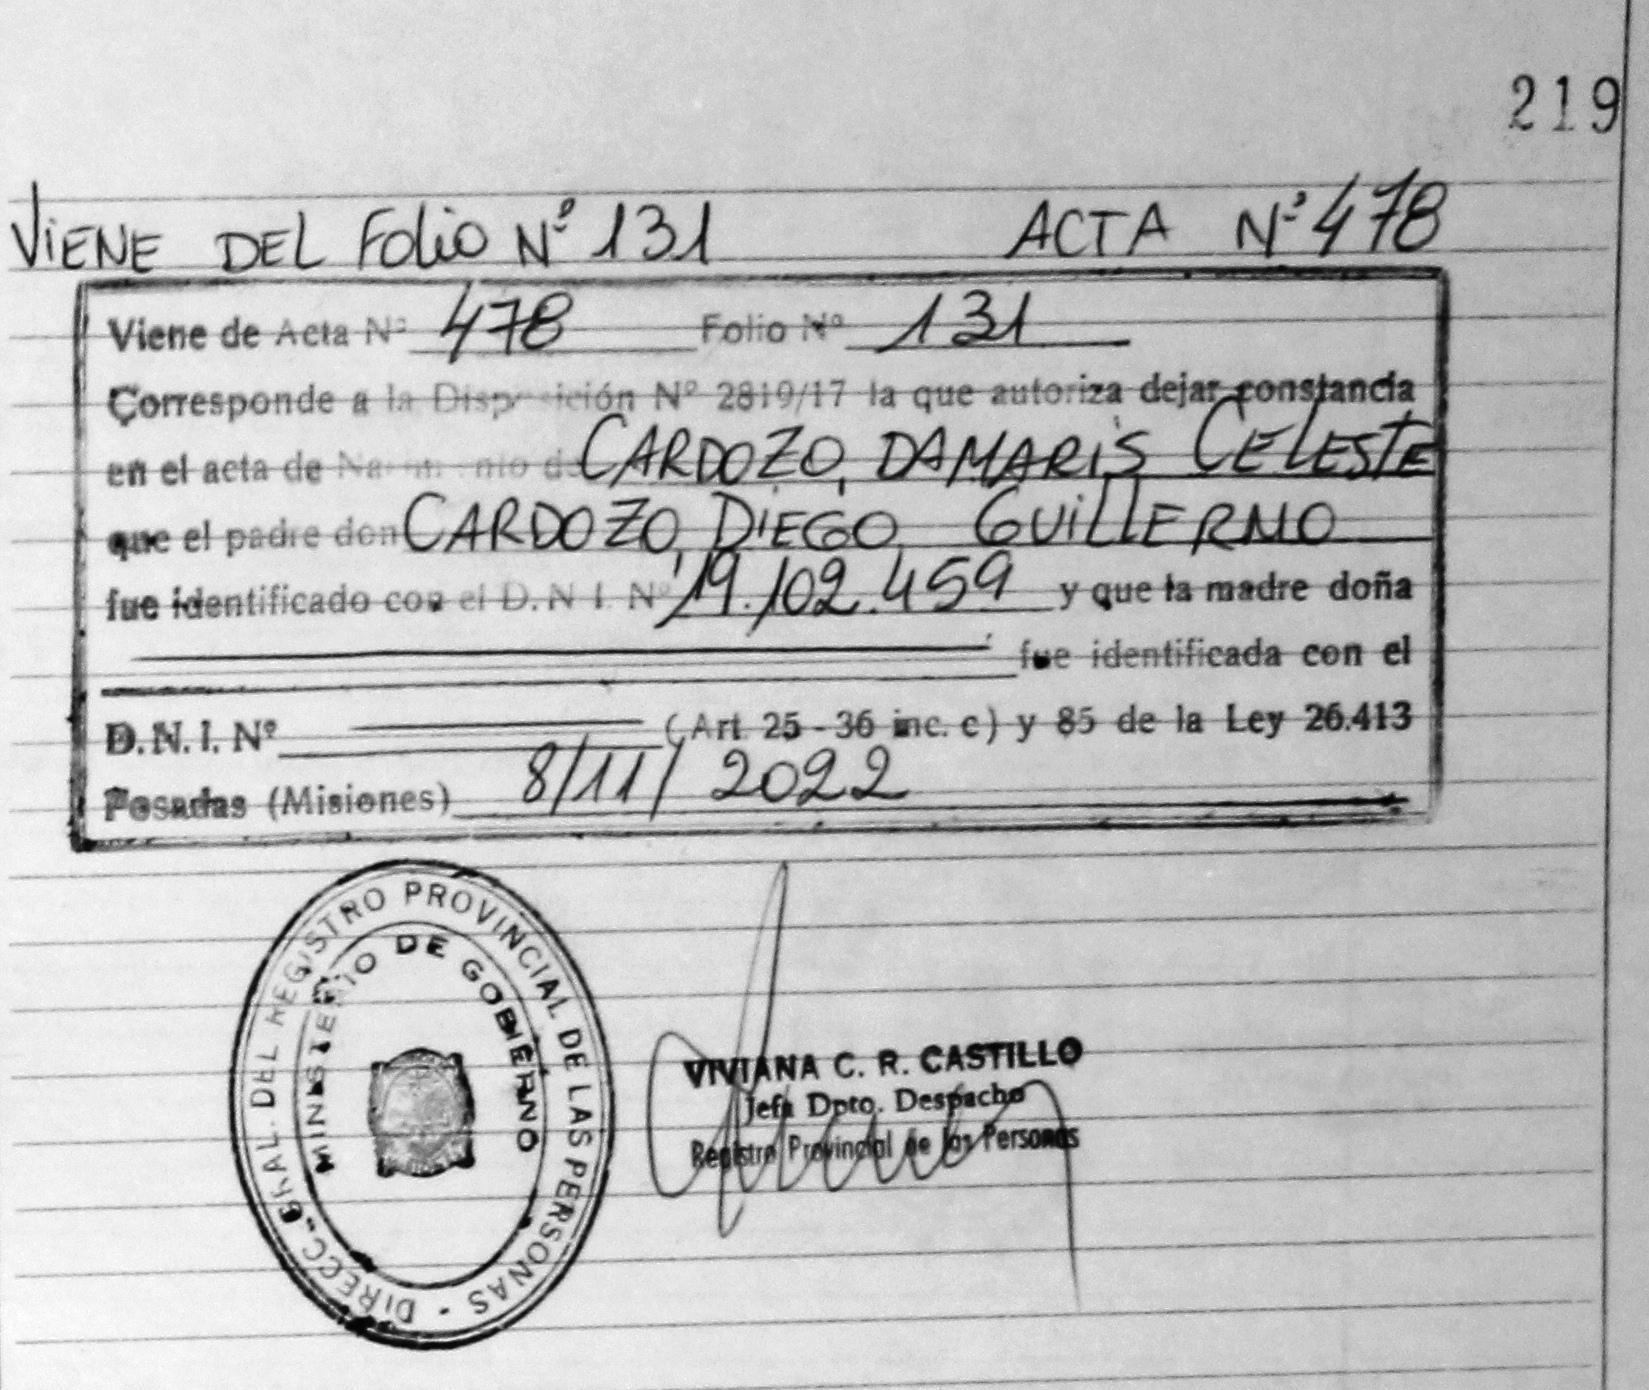 219
VIENE DEL FOLIO Nº 131 ACTA Nº 478
Viene de Acta Nº 478 Folio Nº 131
Corresponde a la Disposición Nº 2819/17 la que autoriza dejar constancia
en el acta de Nacimiento de CARDOZO, DAMARIS CELESTE
que el padre don CARDOZO, DIEGO GUILLERMO
fue identificado con el D.N.I. Nº 19.102.459 y que la madre doña
fue identificada con el
D.N.I. Nº (Art. 25-36 inc. c) y 85 de la Ley 26.413
Posadas (Misiones) 8/11/2022
DIRECC. GRAL. DEL REGISTRO PROVINCIAL DE LAS PERSONAS -
MINISTERIO DE GOBIERNO
VIVIANA C. R. CASTILLO
Jefa Dpto. Despacho
Registro Provincial de las Personas